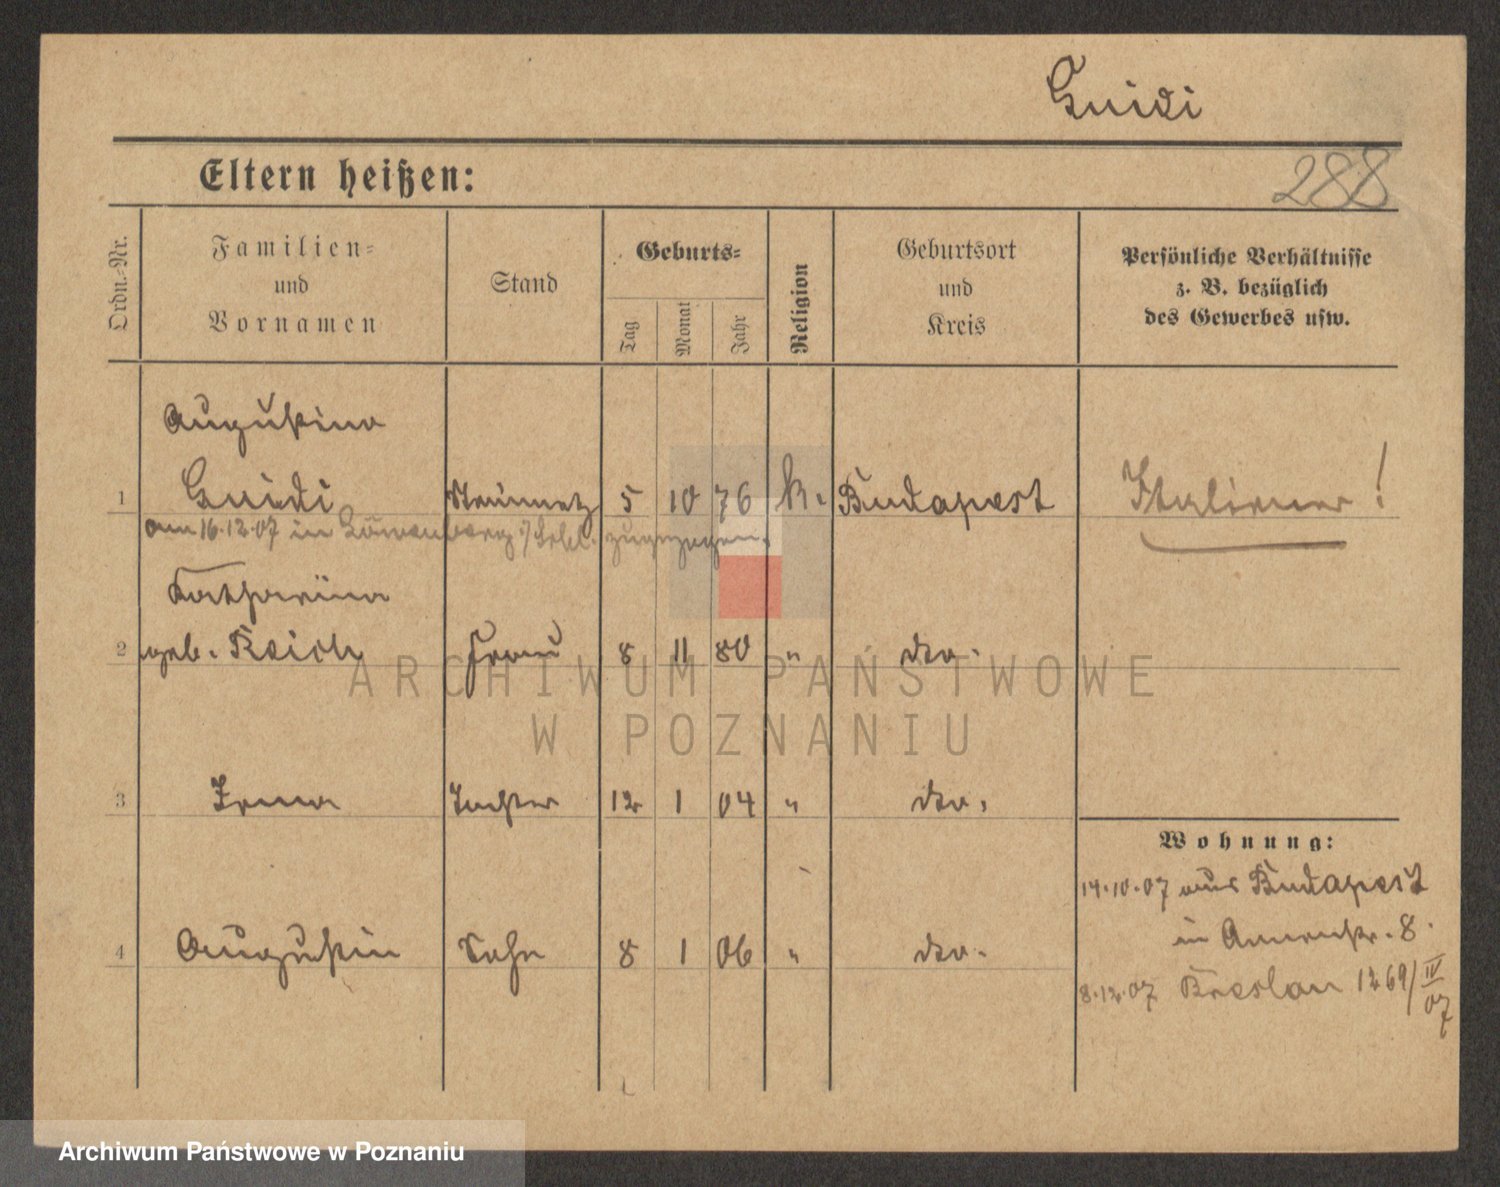 Guidi
Eltern heißen:
288
Ordn.-Nr.
Familien-
und
Vornamen
Stand
Geburts-
Tag
Monat
Jahr
Religion
Geburtsort
und
Kreis
Persönliche Verhältnisse
z. B. bezüglich
des Gewerbes usw.
Augustino
1 Guidi Steinmetz 5 10 76 k. Budapest Italiener!
am 16.12.07 in Löwenberg i/Schl. zugezogen.
Katharina
2 geb. Reich Frau 8 11 80 " do.
3 Irma Tochter 12 1 04 " do.
4 Augustin Sohn 8 1 06 " do.
Wohnung:
14.10.07 aus Budapest
in Annenstr. 8.
8.12.07 Breslau 1269/IV
07
ARCHIWUM PAŃSTWOWE
W POZNANIU
Archiwum Państwowe w Poznaniu